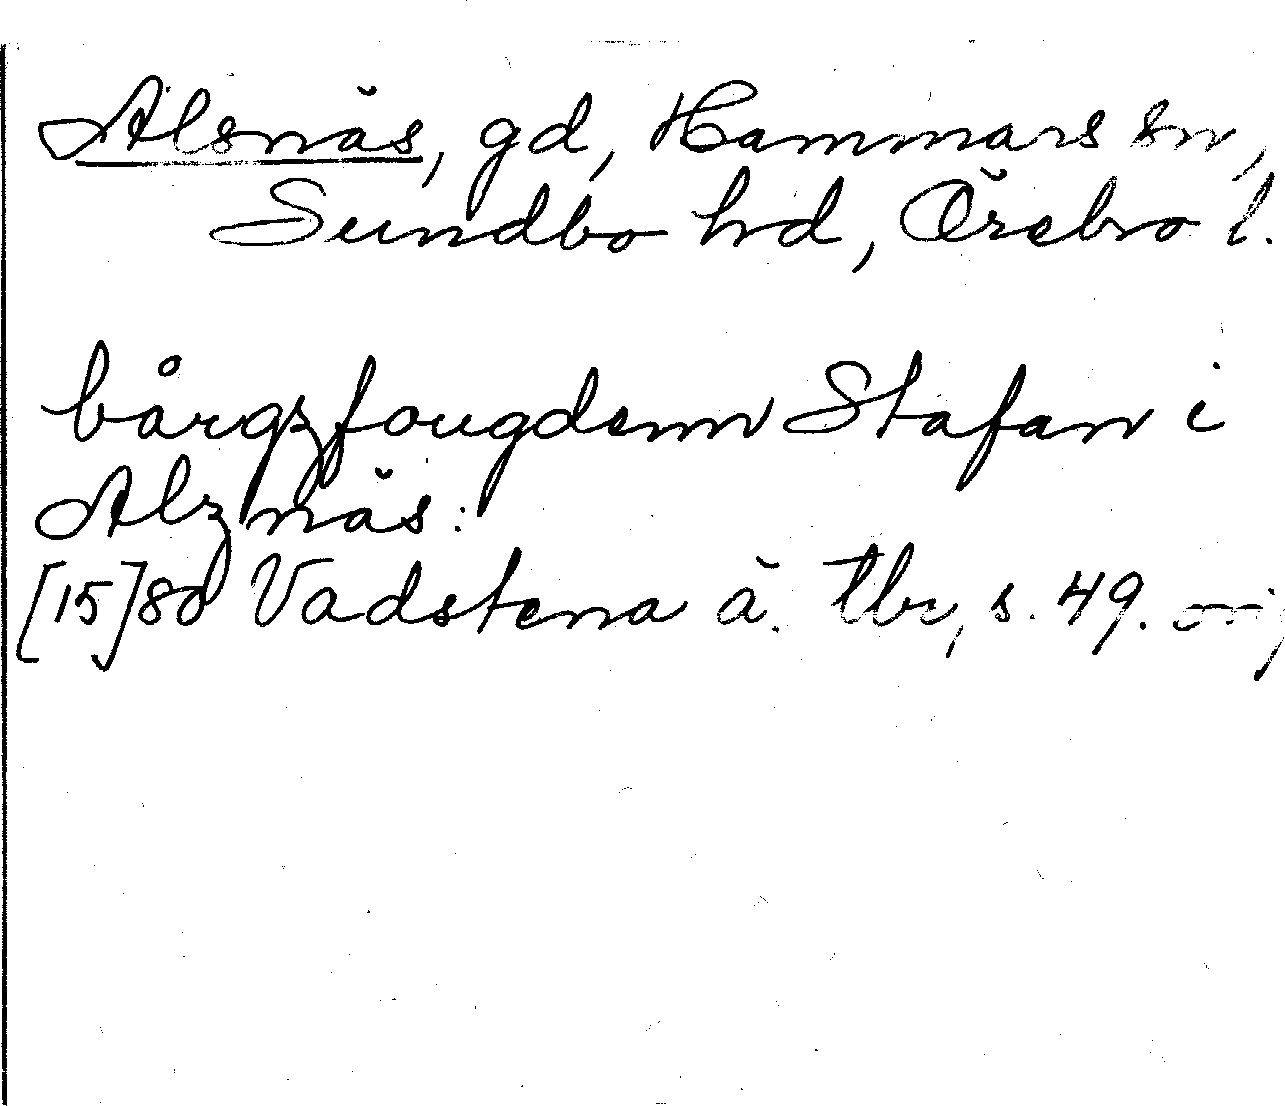 Alsnäs, gd, Hammars sn,
Sundbo hd, Örebro l.
bårgzfougdenn Stafan i
Alznäs:
[15]80 Vadstena ä. tbr, s. 49.